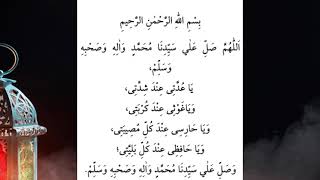 بِسْمِ اللهِ الرَّحْمٰنِ الرَّحِيمِ
اَللّٰهُمَّ صَلِّ عَلٰي سَيِّدِنَا مُحَمَّدٍ وَاٰلِهِ وَصَحْبِهِ
وَسَلِّمْ،
يَا عُدَّتِى عِنْدَ شِدَّتِى،
وَيَاغَوْثِى عِنْدَ كُرْبَتِى،
وَيَا حَارِسِى عِنْدَ كُلِّ مُصِيبَتِى،
وَيَا حَافِظِى عِنْدَ كُلِّ بَلِيَّتِى؛
وَصَلِّ عَلٰي سَيِّدِنَا مُحَمَّدٍ وَاٰلِهِ وَصَحْبِهِ وَسَلِّمْ.